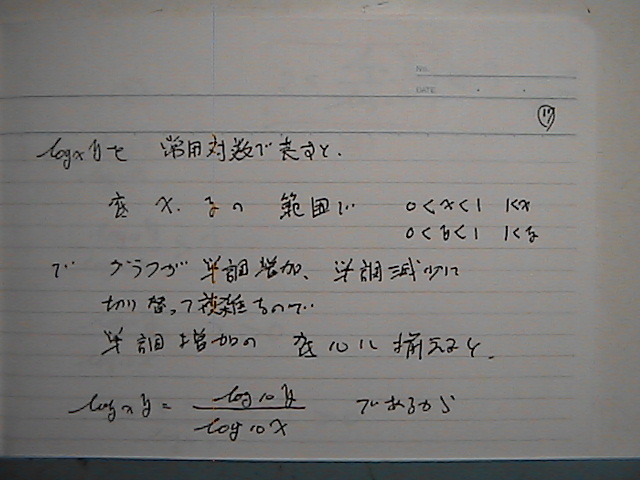 No.
DATE
⑰
log x y を 常用対数で表すと、
底 x, z の 範囲で 0<x<1 1<x
0<z<1 1<z
で グラフが 単調増加、単調減少に
切り替って複雑なので
単調増加の 底10に揃えると、
log x y = log 10 y / log 10 x であるから